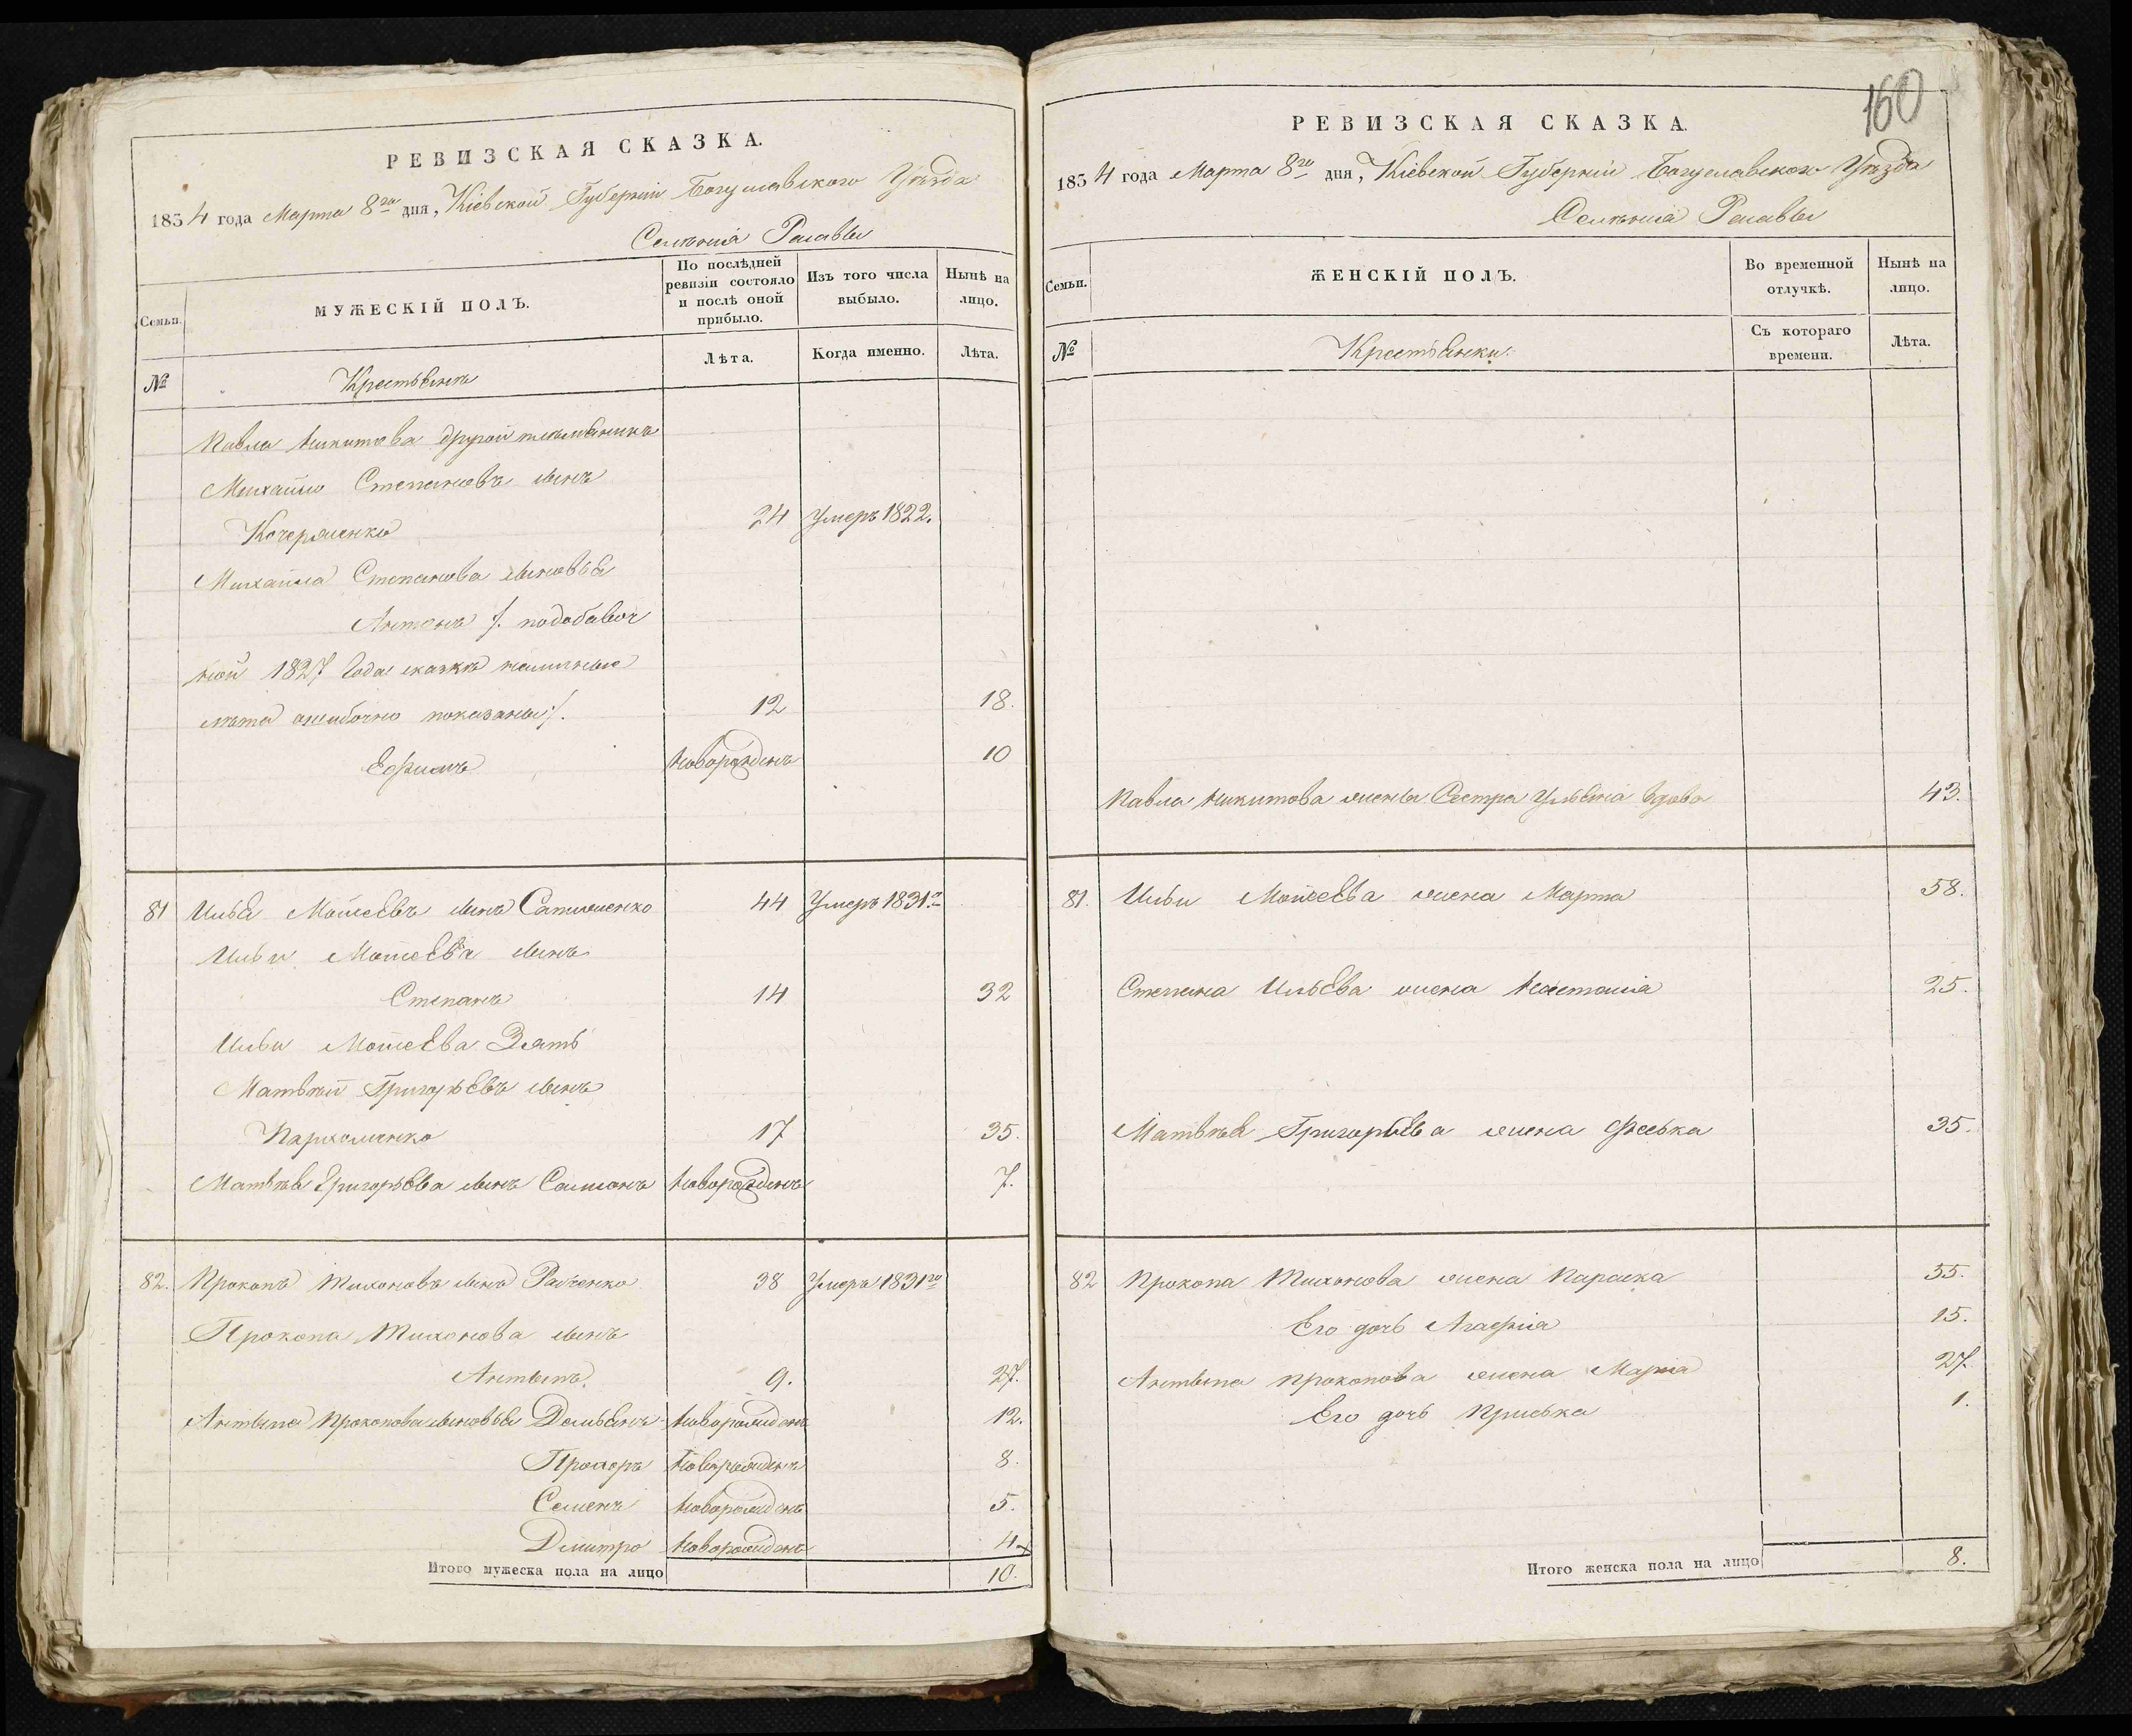 РЕВИЗСКАЯ СКАЗКА.
1834 года Марта 8го дня, Кіевской Губерніи Богуславскаго Уѣзда
Селенія Расавы
Семьи.
МУЖЕСКІЙ ПОЛЪ.
По послѣдней ревизіи состояло и послѣ оной прибыло.
Изъ того числа выбыло.
Нынѣ на лицо.
№
Крестьянъ
Лѣта.
Когда именно.
Лѣта.
Павла Никитова другой племянникъ
Михайло Степановъ сынъ
24 Умеръ 1822.
Михайла Степанова сыновья
Антонъ /. подобавоч
ной 1827 года сказкѣ наличные
лѣта ошибочно показаны /. 12 18.
Ефимъ Новорожденъ 10
81 Илья Мойсеевъ сынъ 44 Умеръ 1831го
Ильи Мойсеева сынъ
Степанъ 14 32
Ильи Мойсеева Зять
Матвѣй Григорьевъ сынъ
Пархоменко 17 35.
Матвѣя Григорьева сынъ Самсонъ Новорожденъ 7.
82. Прокопъ Тихоновъ сынъ Радченко 38 Умеръ 1831го
Прокопа Тихонова сынъ
Антипъ 9. 27.
Антипа Прокопова сыновья Демьянъ Новорожденъ 12.
Прохоръ Новорожденъ 8.
Семенъ Новорожденъ 5.
Дмитро Новорожденъ 4
Итого мужеска пола на лицо 10.
160
РЕВИЗСКАЯ СКАЗКА.
1834 года Марта 8го дня, Кіевской Губерніи Богуславскаго Уѣзда
Селенія Расавы
Семьи.
ЖЕНСКІЙ ПОЛЪ.
Во временной отлучкѣ.
Нынѣ на лицо.
№
Крестьянки.
Съ котораго времени.
Лѣта.
Павла Никитова жены Сестра Ульяна вдова 43.
81. Ильи Мойсеева жена Марта 58.
Степана Ильева жена Настасія 25.
Матвѣя Григорьева жена Феська 35.
82 Прокопа Тихонова жена Параска 55.
Его дочь Агафія 15.
Антипа Прокопова жена Марія 27.
Его дочь Приська 1.
Итого женска пола на лицо 8.